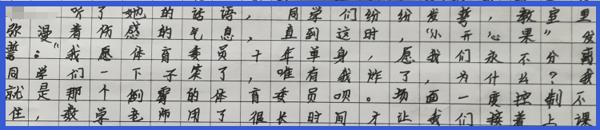 听了她的话语，同学们纷纷发誓，教室里
弥漫着伤感的气息，直到这时，“小开心果”发
誓：“我愿体育委员十年单身，愿我们永不分离
同学们一下子笑了，唯有我炸了，为什么？我
就是那个倒霉的体育委员呗。场面一度控制不
住，数学老师用了很长时间才让我们接着上课